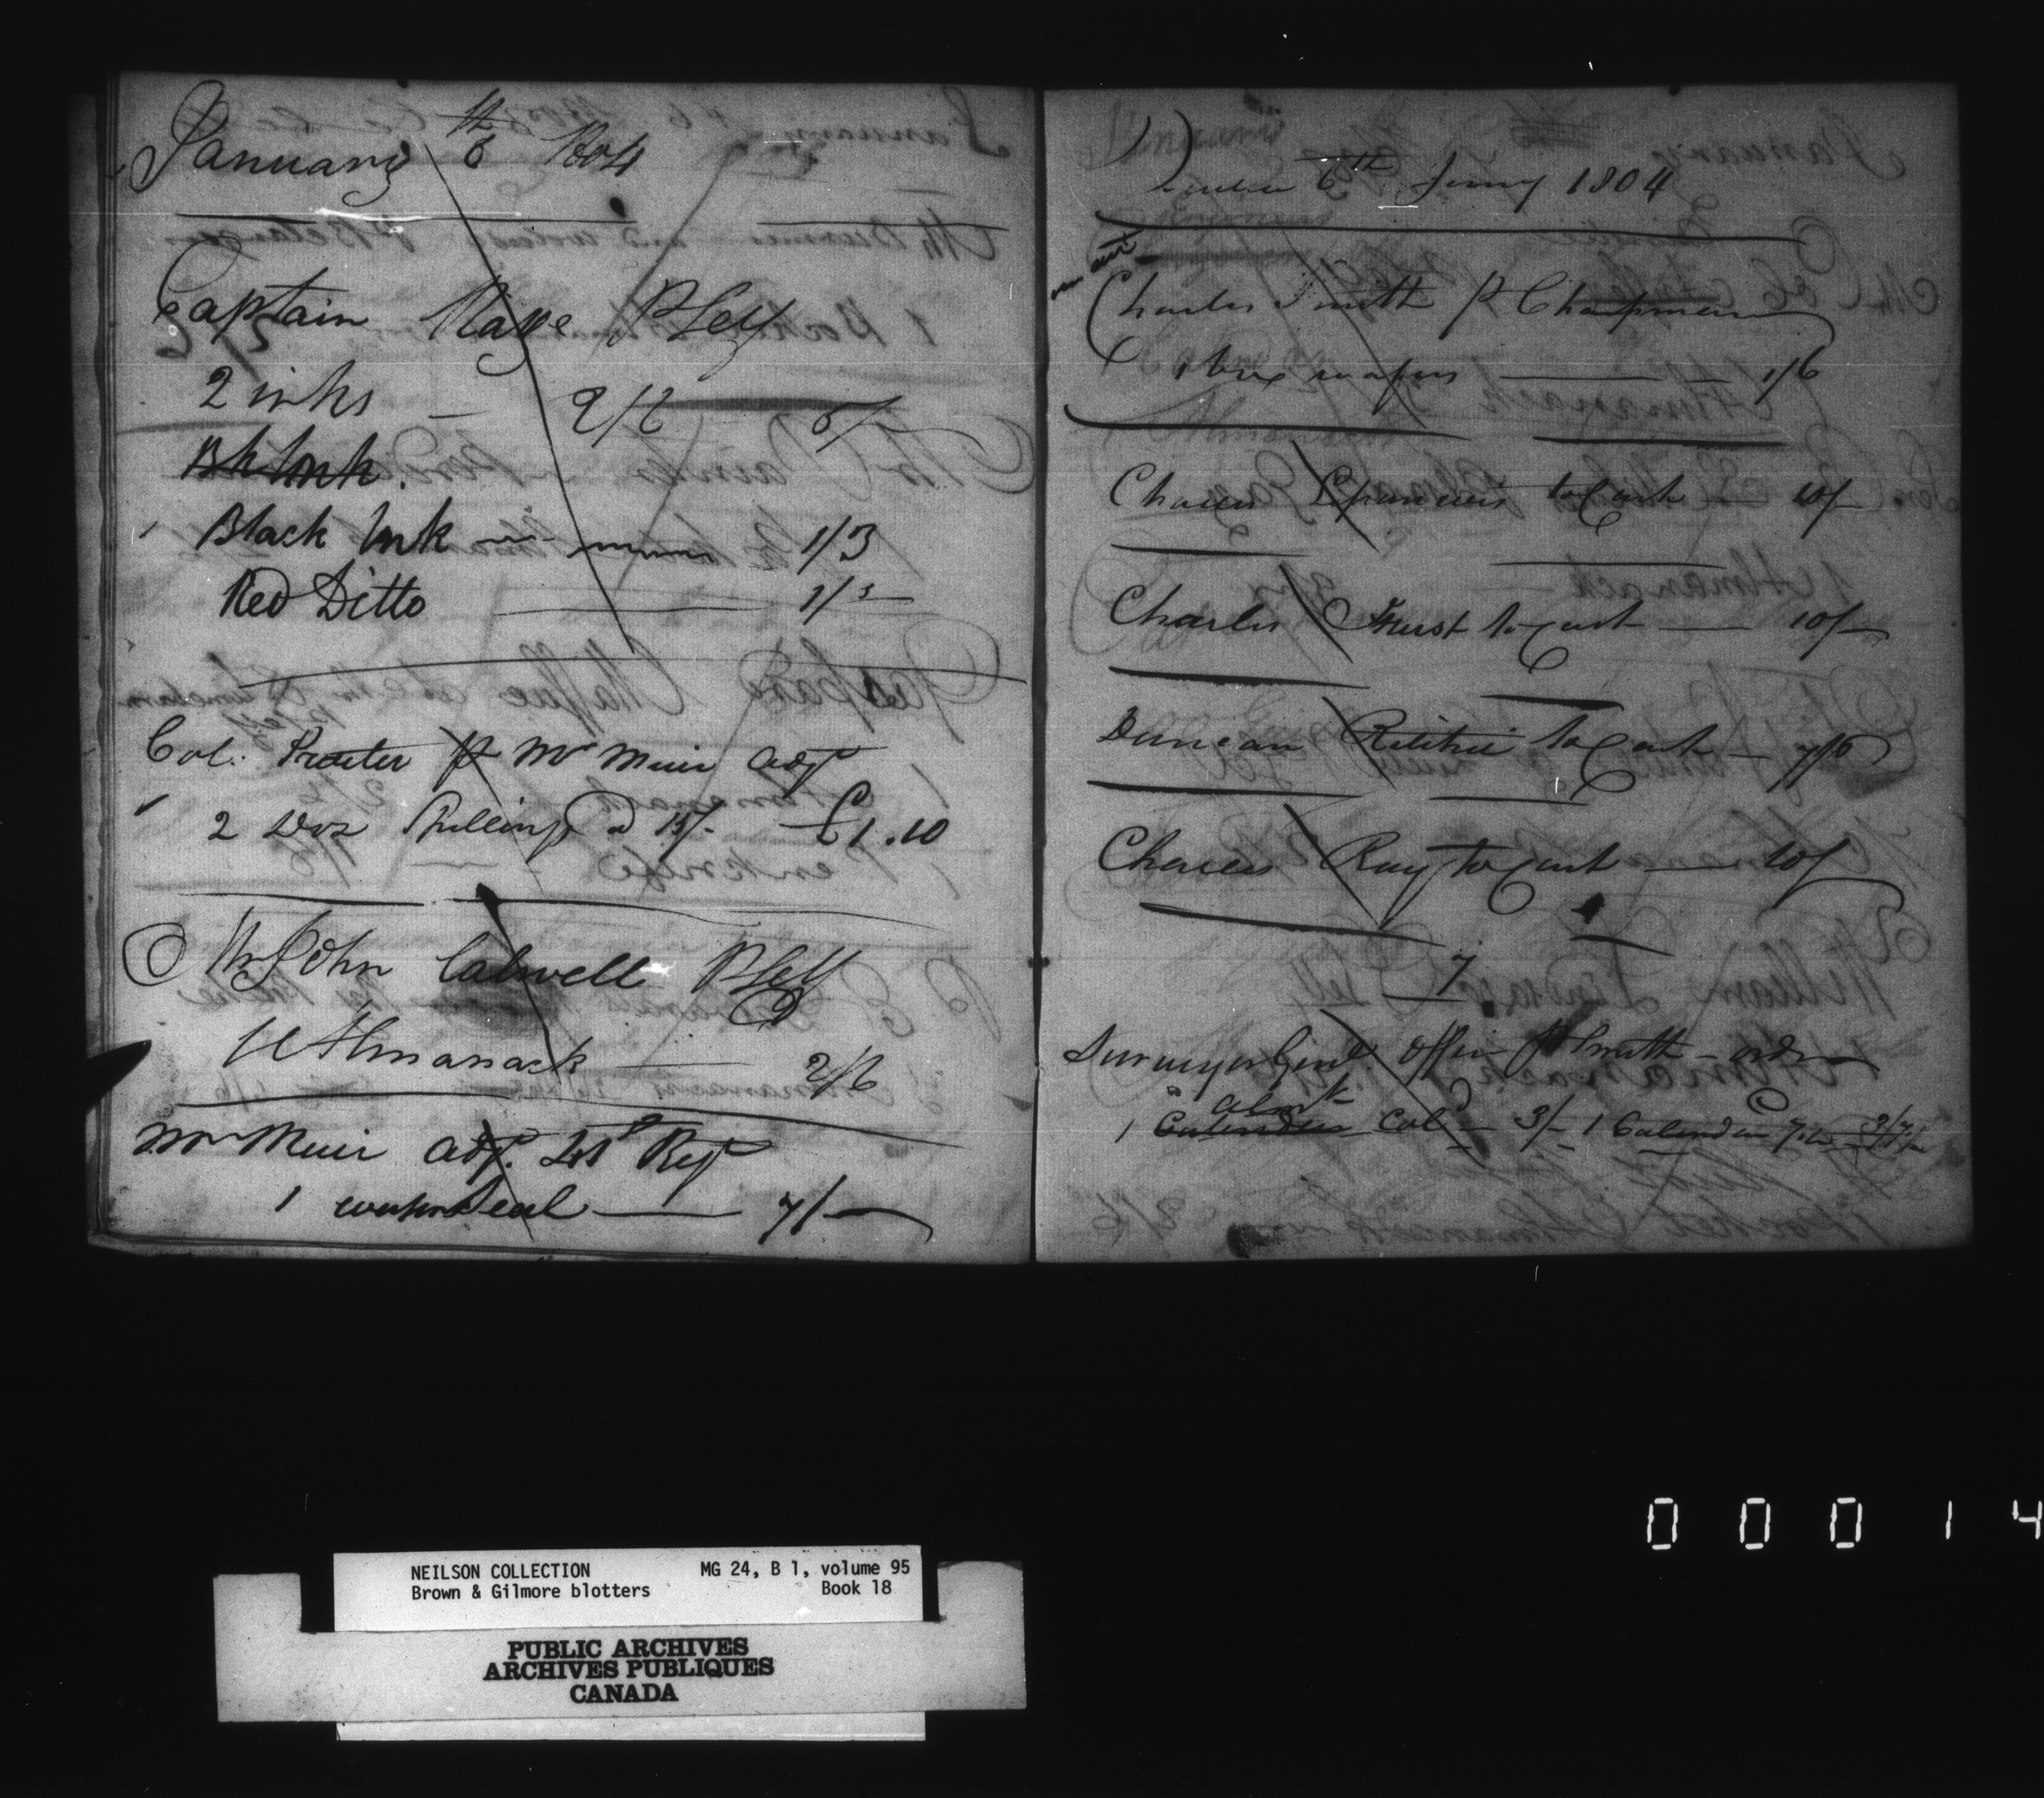 January 6th 1804
Captain Raye P Self
2 inks — 2/6 5/
Bk Ink.
1 Black Ink 1/3
Red Ditto 1/3
Col. Procter P Mr Muir Adjt
2 Doz Spellings @ 15/. £1.10
Mr John Calwell P Self
1 Almanack — 2/6
Mr Muir Adjt. 41st Regt
1 Seal — 7/—
Quebec 6th Jany 1804
Charles Smith P Chapman
1 box wafers — 1/6
Charles to Cash — 10/—
Charles to Cash — 10/—
Duncan Ritchie to Cash — 7/6
Charles Roy to Cash — 10/
7
Surveyor Genl Office P Smith — order
Almk
1 Calendar Col — 3/— 1 Calendar
NEILSON COLLECTION MG 24, B 1, volume 95
Brown & Gilmore blotters Book 18
PUBLIC ARCHIVES
ARCHIVES PUBLIQUES
CANADA
0 0 0 1 4